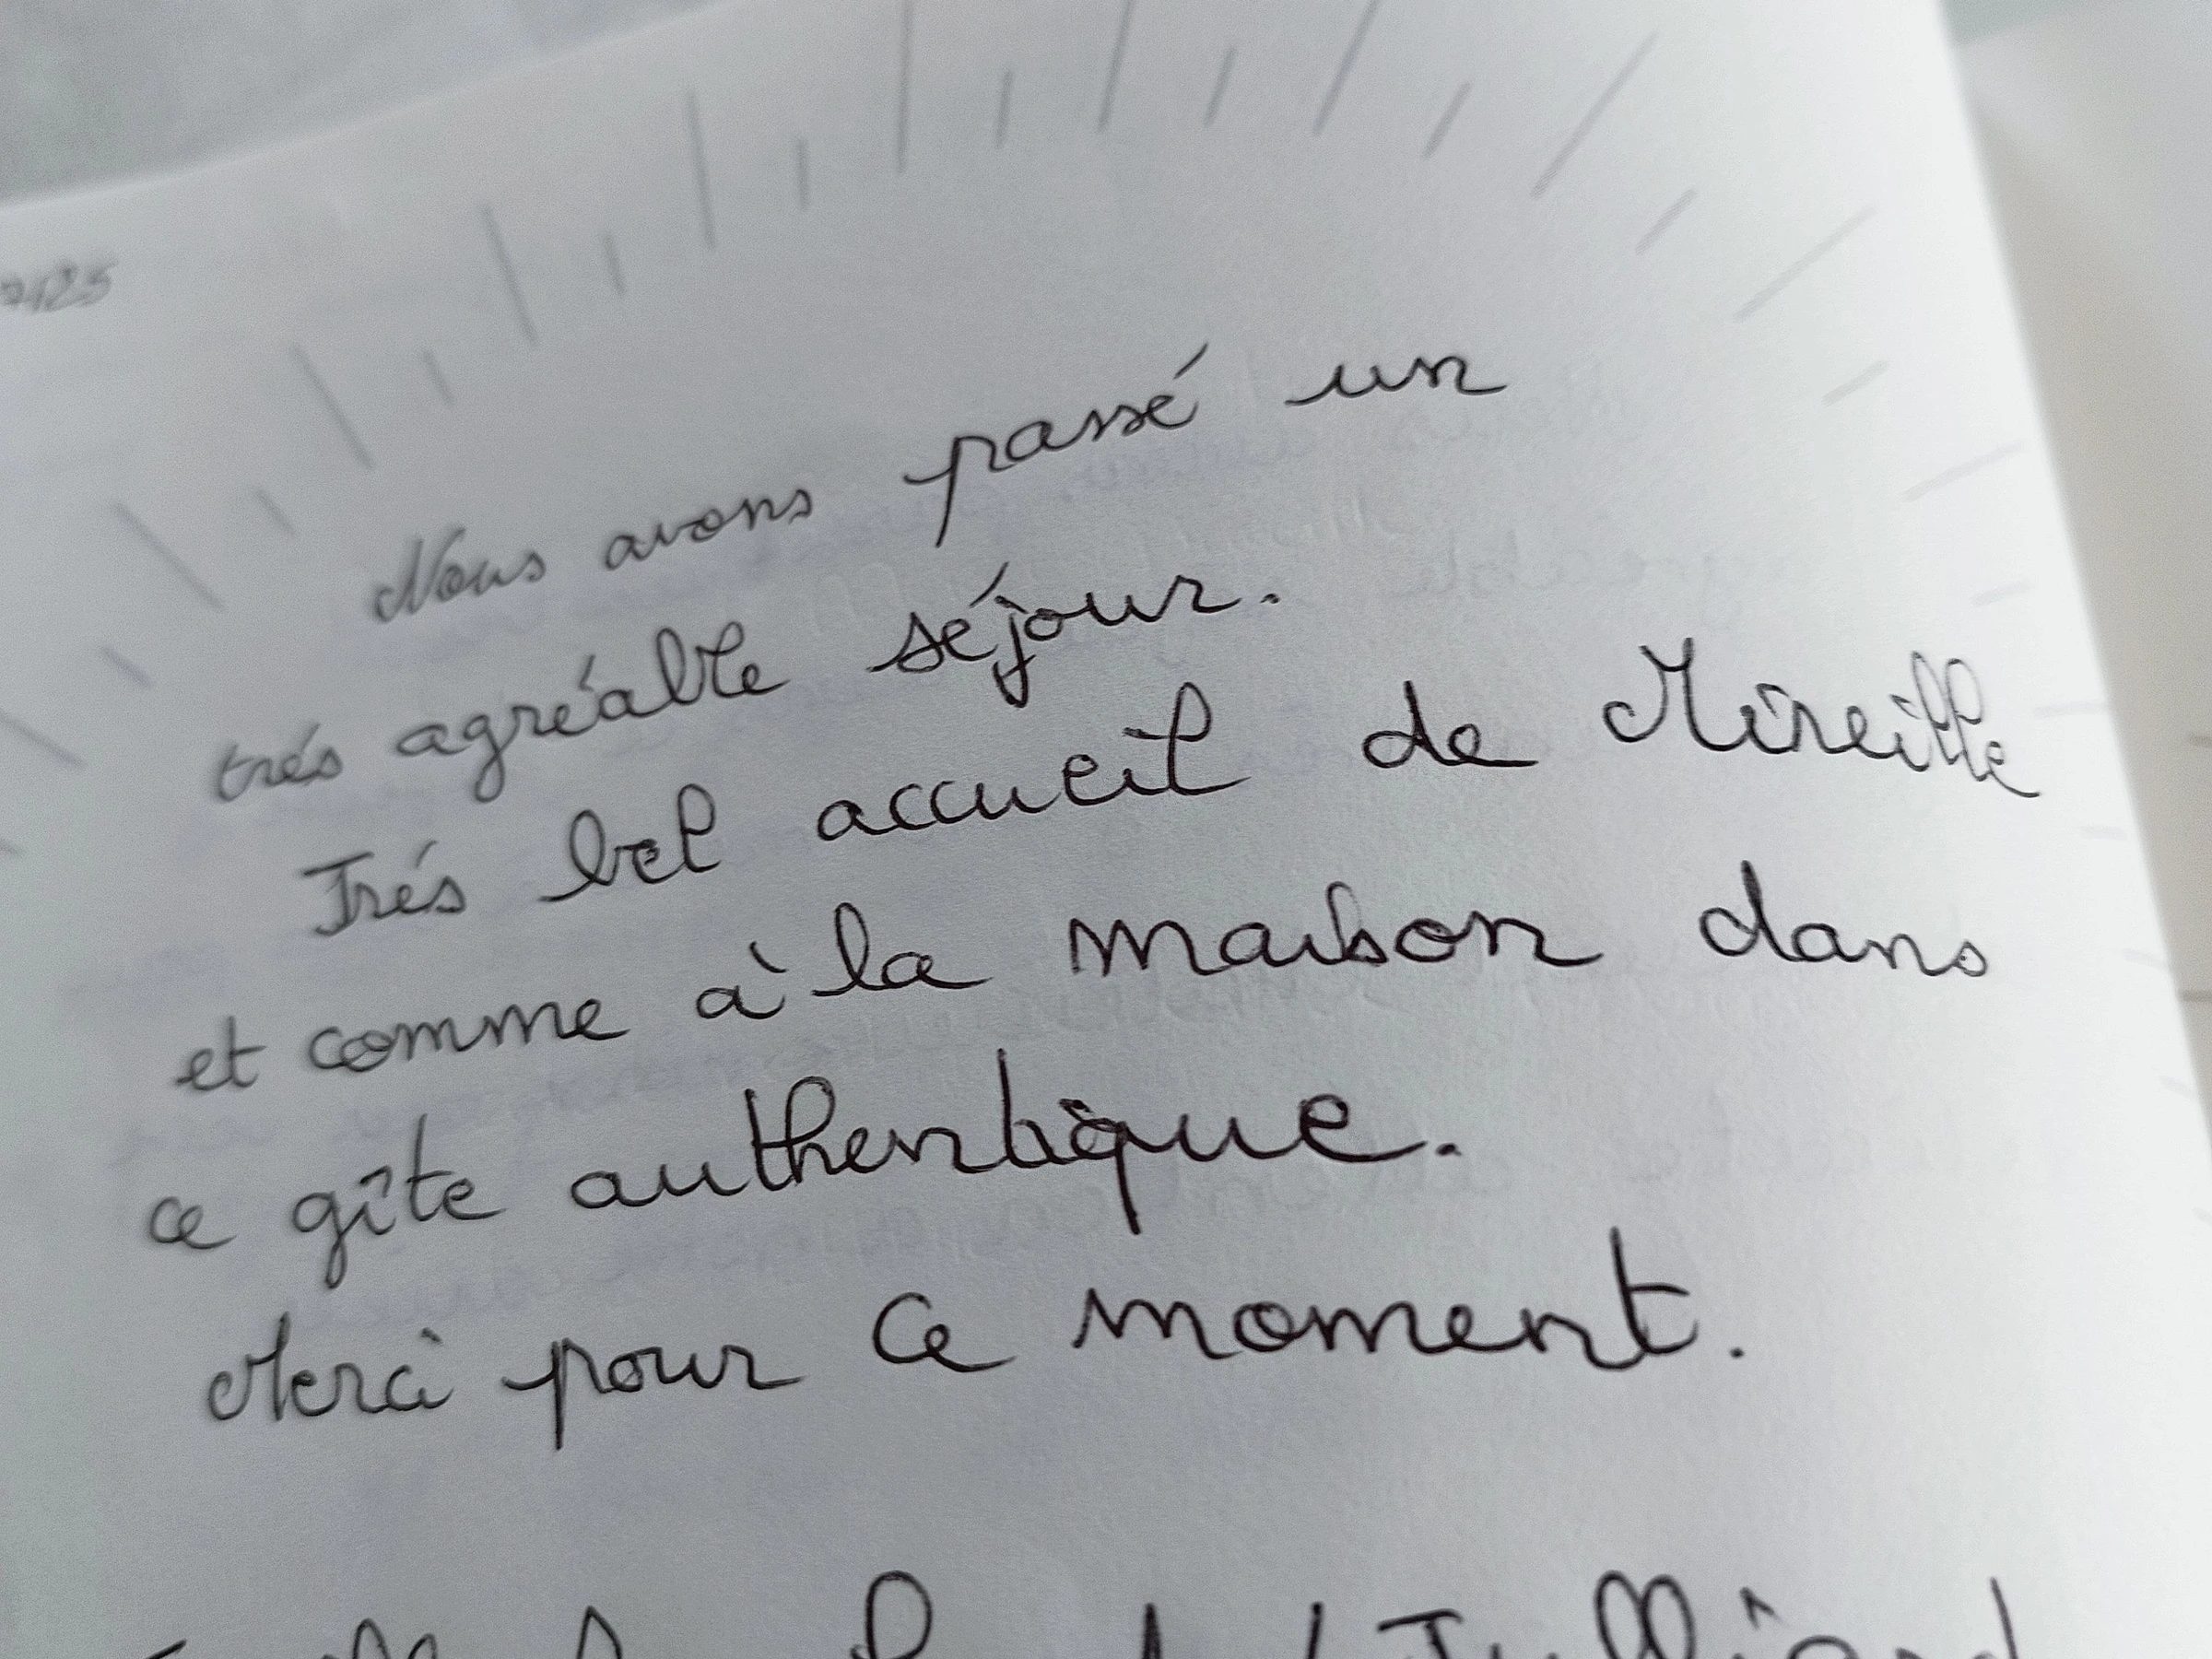 Nous avons passé un
trés agréable séjour.
Trés bel accueil de Mireille
et comme à la maison dans
ce gîte authentique.
Merci pour ce moment.